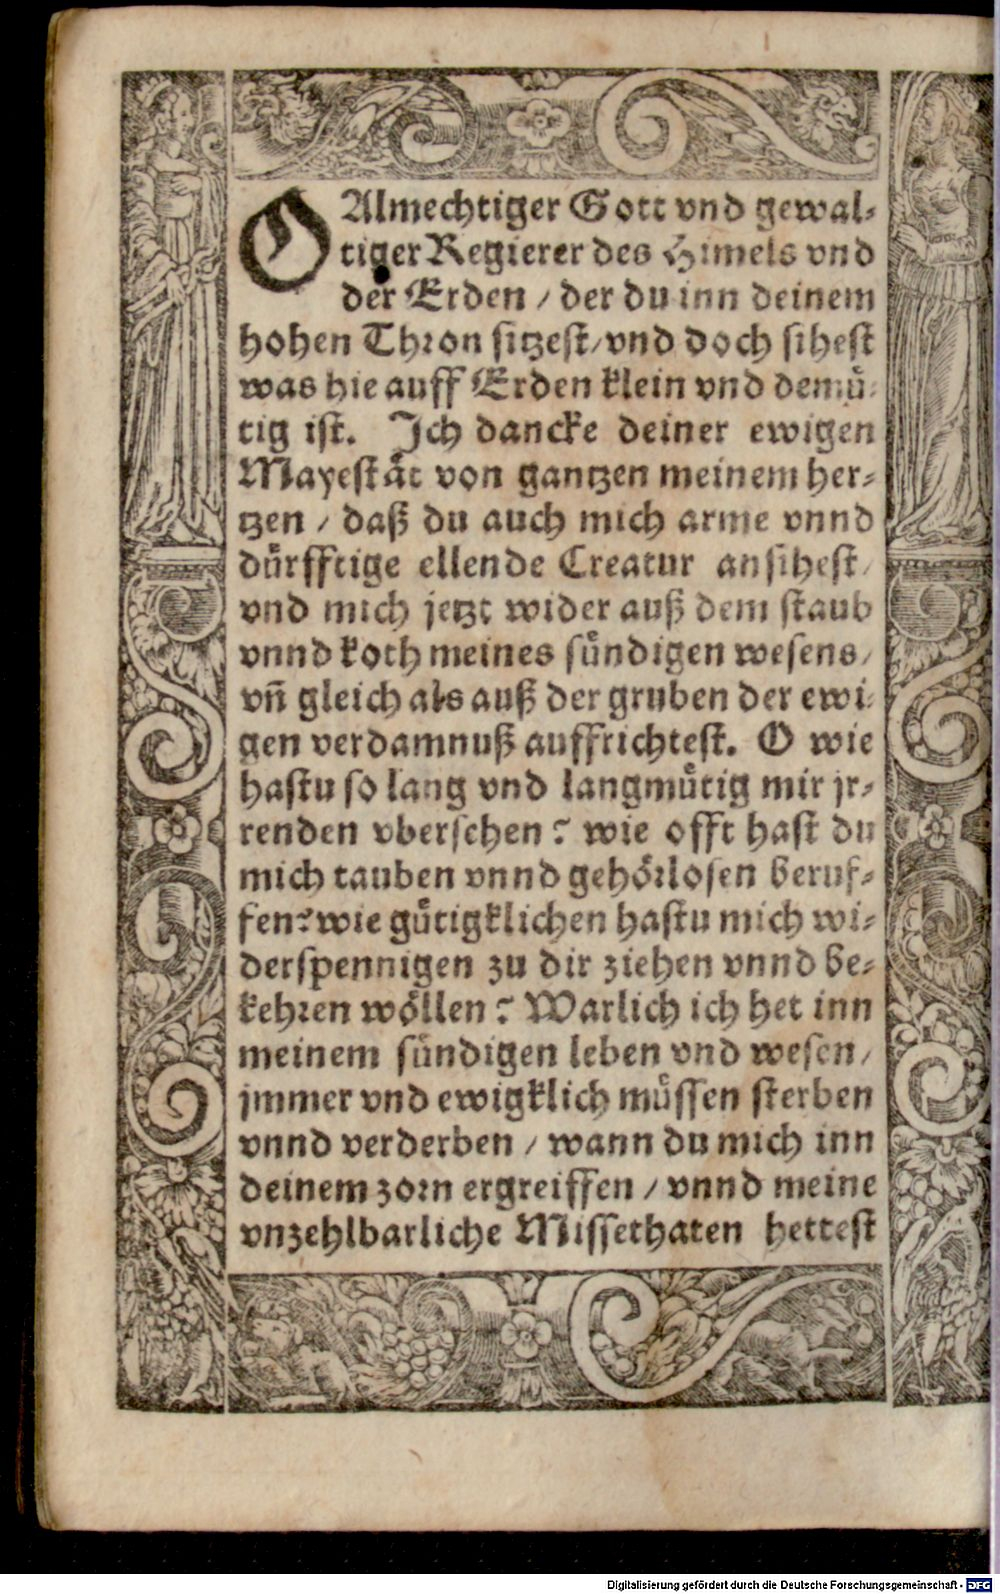 O Almechtiger Gott vnd gewal-
tiger Regierer des Himels vnd
der Erden / der du inn deinem
hohen Thron sitzest / vnd doch sihest
was hie auff Erden klein vnd demuͤ-
tig ist. Ich dancke deiner ewigen
Mayestaͤt von gantzen meinem her-
tzen / daß du auch mich arme vnnd
duͤrfftige ellende Creatur ansihest /
vnd mich jetzt wider auß dem staub
vnnd koth meines suͤndigen wesens /
vñ gleich als auß der gruben der ewi-
gen verdamnuß auffrichtest. O wie
hastu so lang vnd langmuͤtig mir jr-
renden vbersehen? wie offt hast du
mich tauben vnnd gehoͤrlosen beruf-
fen? wie guͤtigklichen hastu mich wi-
derspennigen zu dir ziehen vnnd be-
kehren woͤllen? Warlich ich het inn
meinem suͤndigen leben vnd wesen /
jmmer vnd ewigklich muͤssen sterben
vnnd verderben / wann du mich inn
deinem zorn ergreiffen / vnnd meine
vnzehlbarliche Missethaten hettest
Digitalisierung gefördert durch die Deutsche Forschungsgemeinschaft - DFG